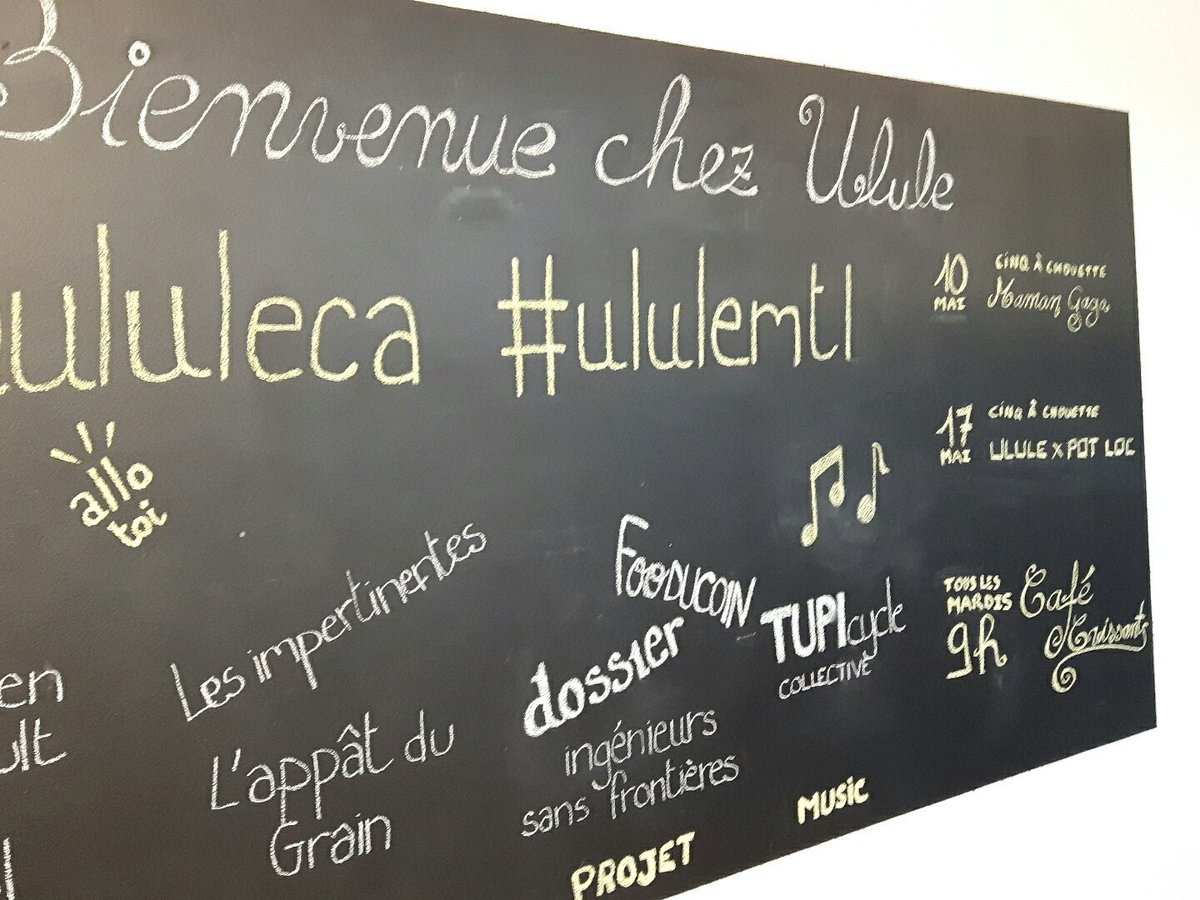 Bienvenue chez Ulule
ululeca #ululemtl
10 MAI
CINQ À CHOUETTE
Maman Gaga
17 MAI
CINQ À CHOUETTE
ULULE x POT LOC
TOUS LES
MARDIS
9h
Café
Croissants
allo
toi
Les impertinentes
L'appât du
Grain
FOODUCOIN
dossier
ingénieurs
sans frontières
PROJET
TUPIcycle
COLLECTIVE
MUSIC
en
ult